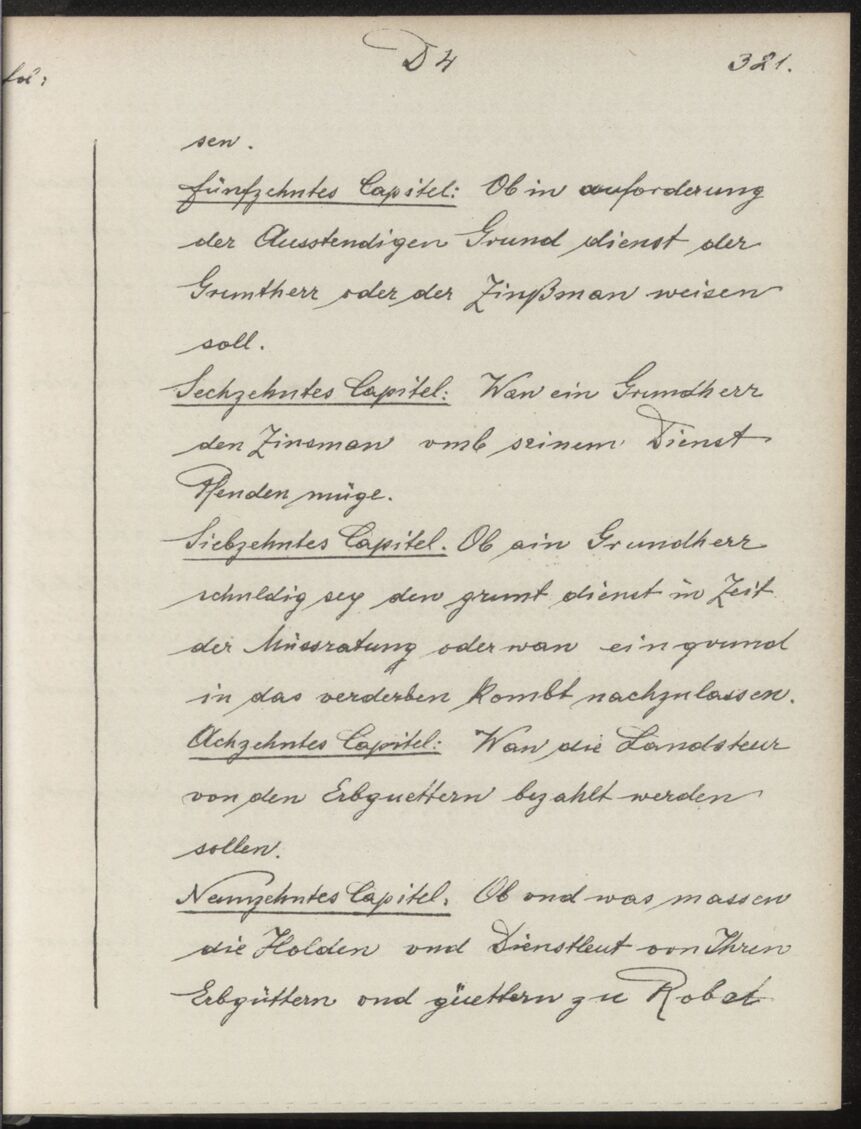 fol:
D4
321.
sen.
Fünfzehntes Capitel: Ob in auforderung
der Ausstendigen Grund dienst der
Gruntherr oder der Zinßman weisen
soll.
Sechzehntes Capitel: Wan ein Grundherr
den Zinsman vmb seinem Dienst
Pfenden müge.
Siebzehntes Capitel. Ob ain Grundherr
schuldig sey den grunt dienst in Zeit
der Missratung oder wan ein grund
in das verderben kombt nachzulassen.
Achzehntes Capitel: Wan die Landsteur
von den Erbguettern bezahlt werden
sollen.
Neunzehntes Capitel. Ob vnd was massen
die Holden vnd Dienstleut von Ihren
Erbgüttern vnd güettern zu Robat